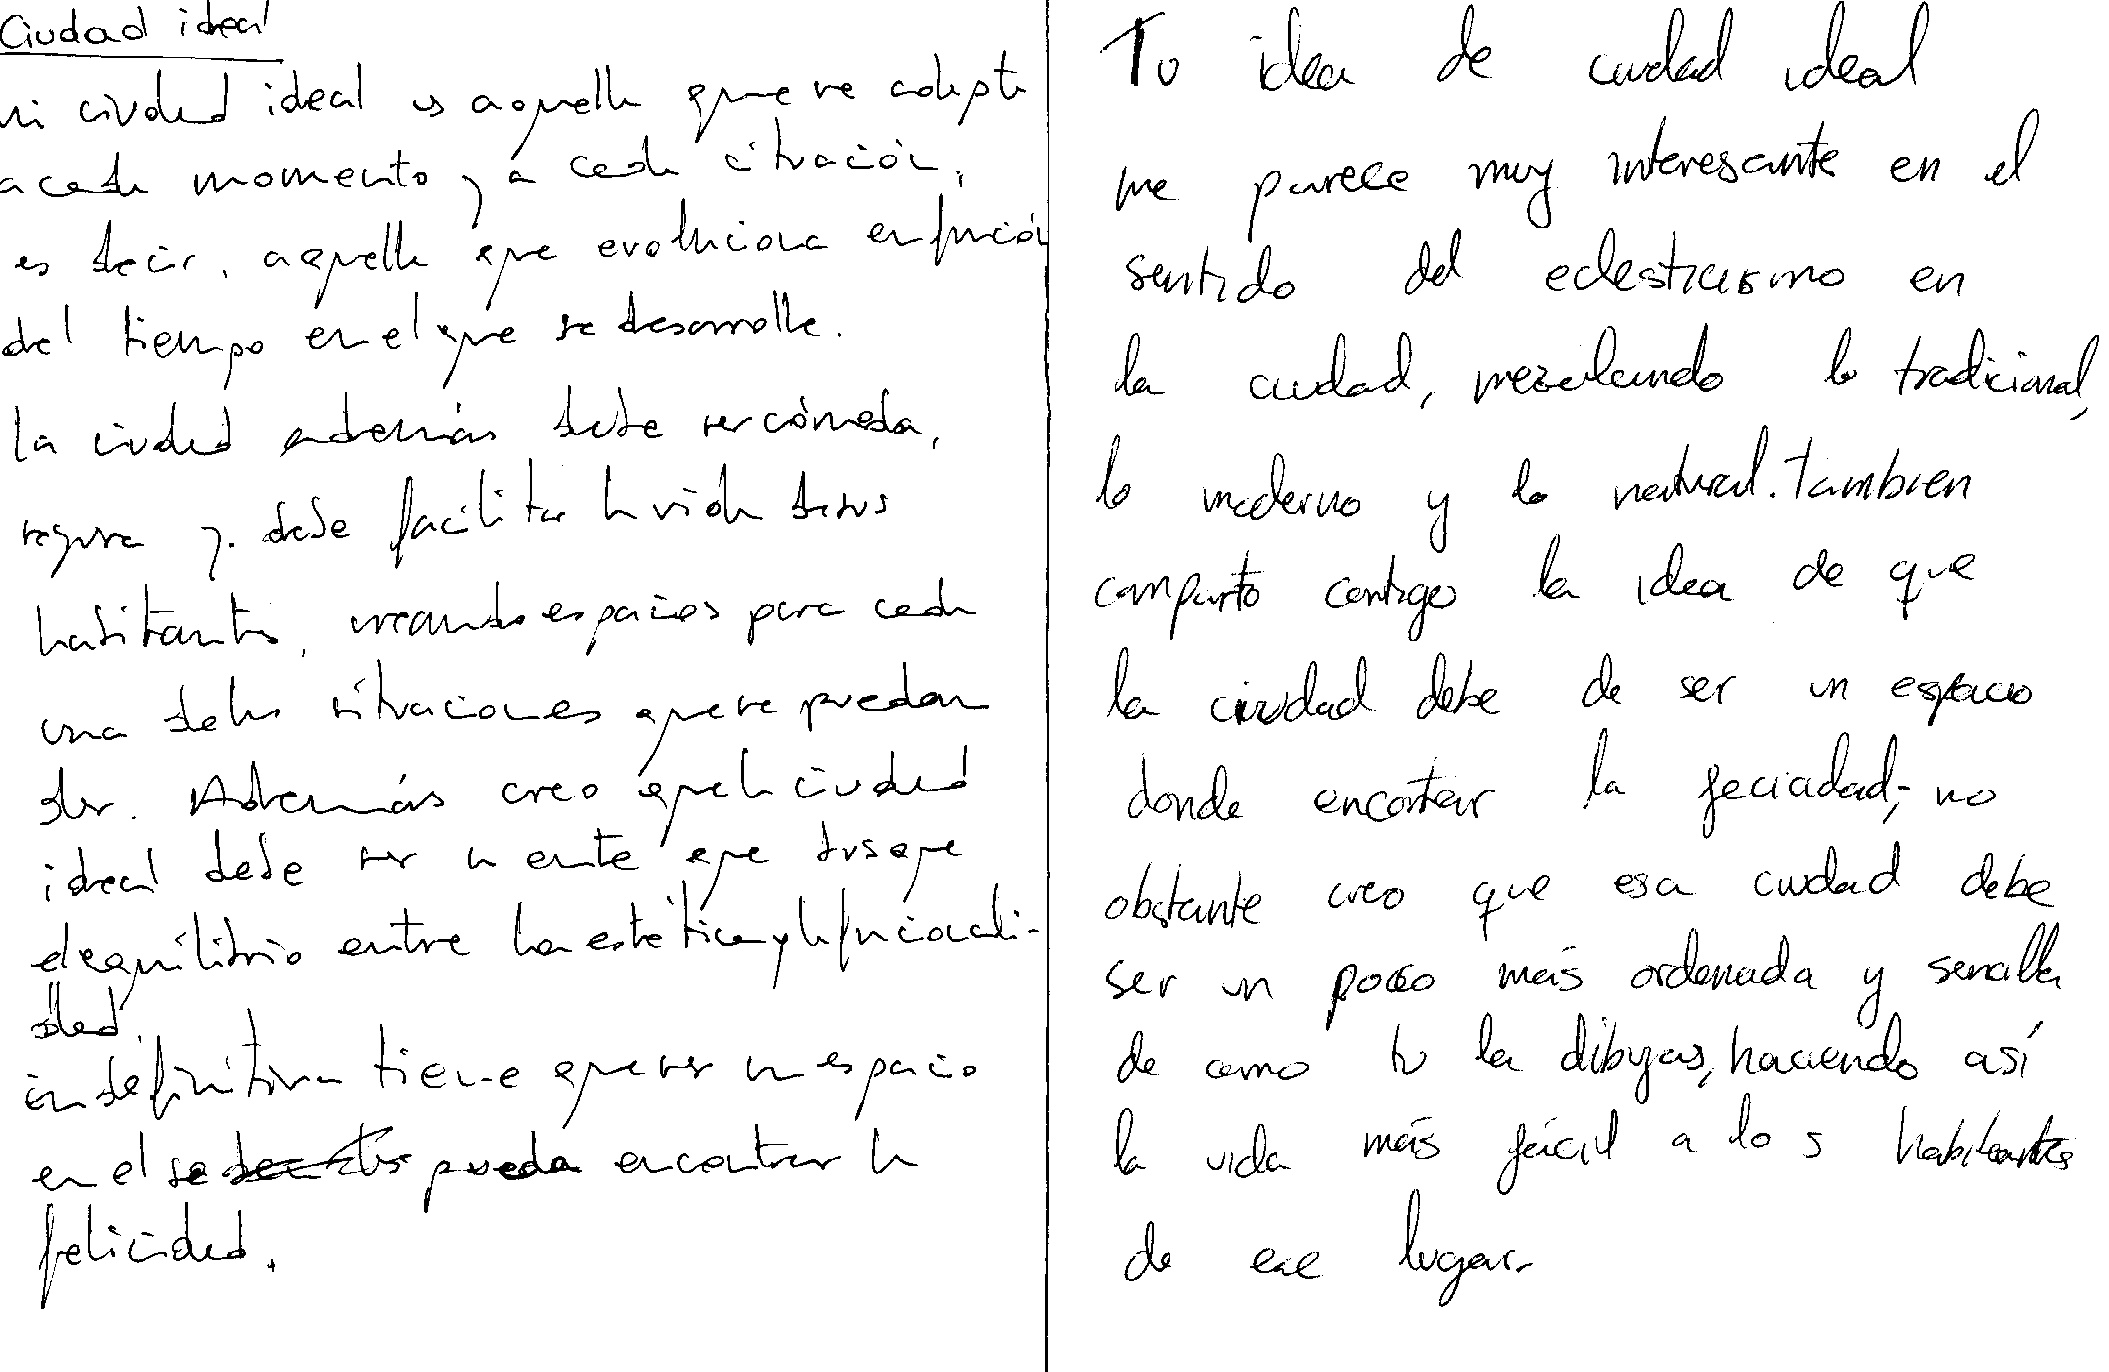 Ciudad ideal
mi ciudad ideal es aquella que se adapta
a cada momento y a cada citvación,
es decir, aquella que evoluciona en función
del tiempo en el que se desarrolle.
la ciudad además debe ser cómoda,
segura y debe facilitar la vida de sus
habitantes, creando espacios para cada
una de las situaciones que se puedan
dar. Además creo que la ciudad
ideal debe ser un ente que busque
el equilibrio entre la estética y la funcionali-
dad.
en definitiva tiene que ser un espacio
en el se pueda encontrar la
felicidad.
Tu idea de ciudad ideal
me parece muy interesante en el
sentido del eclesticismo en
la ciudad, mezclando lo tradicional,
lo moderno y lo natural. tambien
comparto contigo la idea de que
la ciudad debe de ser un espacio
donde encontar la feciadad; no
obstante creo que esa ciudad debe
ser un poco más ordenada y senalla
de como tu la dibujas, haciendo así
la vida más fácil a los habitantes
de ese lugar.